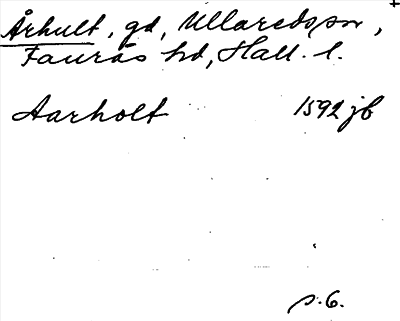 Århult, gd, Ullareds sn,
Faurås hd, Hall. l.
Aarholt 1592 jb
s. 6.